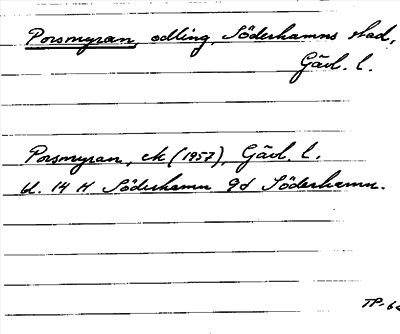 Porsmyran, odling, Söderhamns stad,
Gävl. l.
Porsmyran, ek (1957), Gävl. l.
bl. 14 H Söderhamn 9d Söderhamn.